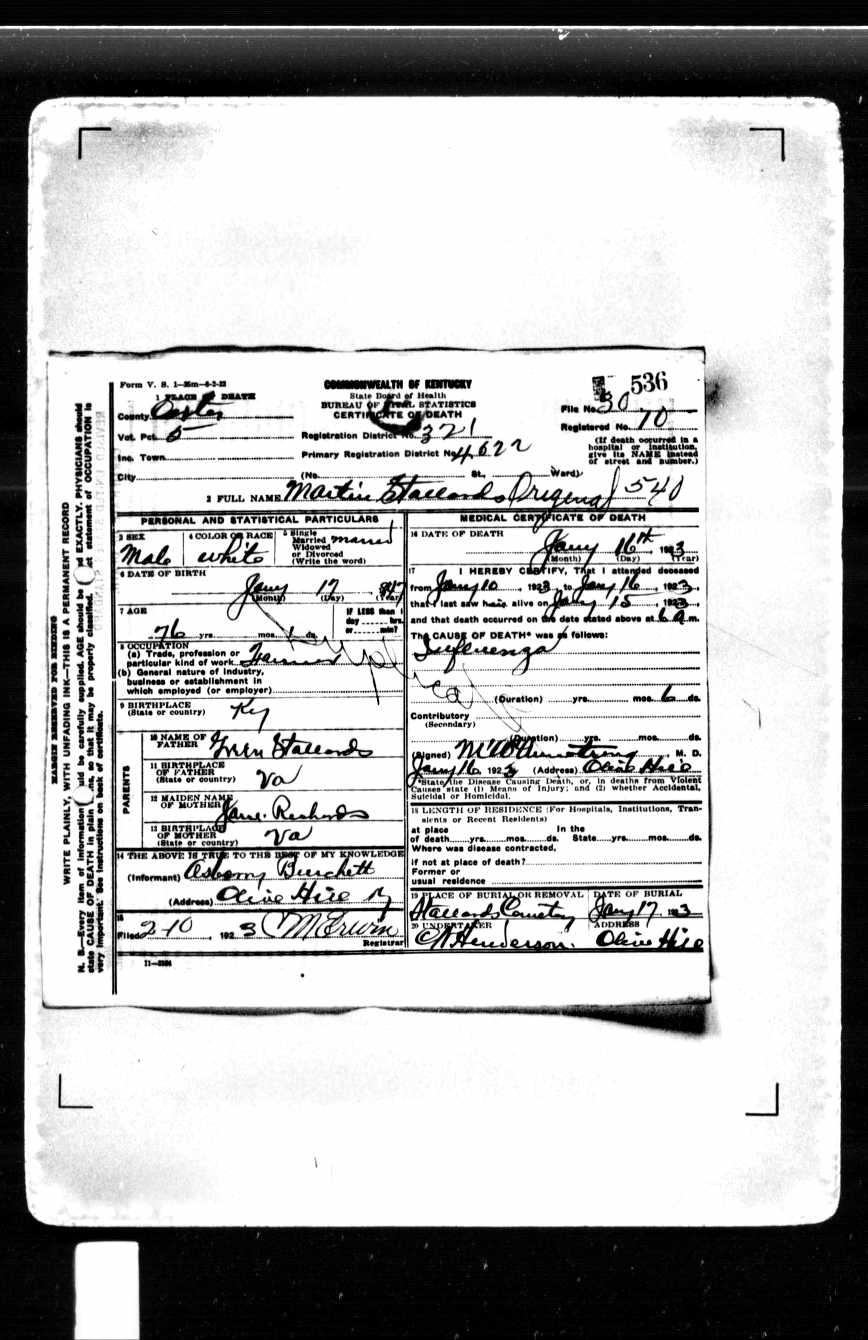 Form V. S. 1—35m—6-2-22
COMMONWEALTH OF KENTUCKY
State Board of Health
BUREAU OF VITAL STATISTICS
CERTIFICATE OF DEATH
536
1 PLACE OF DEATH
County Carter
File No. 30
Vot. Pct. 5
Registration District No. 321
Registered No. 10
Inc. Town
Primary Registration District No. 4622
(If death occurred in a hospital or institution, give its NAME instead of street and number.)
City (No. St., Ward)
2 FULL NAME Martin Stallards Original 540
PERSONAL AND STATISTICAL PARTICULARS
3 SEX Male
4 COLOR OR RACE white
5 Single Married Widowed or Divorced (Write the word) married
6 DATE OF BIRTH
Jany 17 847
(Month) (Day) (Year)
7 AGE
76 yrs. mos. 1 ds.
IF LESS than 1 day hrs. or min?
8 OCCUPATION
(a) Trade, profession or particular kind of work Farmer
(b) General nature of industry, business or establishment in which employed (or employer)
9 BIRTHPLACE
(State or country) Ky
PARENTS
10 NAME OF FATHER Stallards
11 BIRTHPLACE OF FATHER (State or country) Va
12 MAIDEN NAME OF MOTHER Jane Richards
13 BIRTHPLACE OF MOTHER (State or country) Va
14 THE ABOVE IS TRUE TO THE BEST OF MY KNOWLEDGE
(Informant) Osborn Burchett
(Address) Olive Hill Ky
15
Filed 2-10, 1923 Erwin
Registrar
11—3184
MEDICAL CERTIFICATE OF DEATH
16 DATE OF DEATH
Jany 16th, 1923
(Month) (Day) (Year)
17 I HEREBY CERTIFY, That I attended deceased
from Jany 10, 1923, to Jany 16, 1923,
that I last saw him alive on Jany 15, 1923,
and that death occurred on the date stated above at 6 a m.
The CAUSE OF DEATH* was as follows:
Influenza
Duplicate
(Duration) yrs. mos. 6 ds.
Contributory
(Secondary)
(Duration) yrs. mos. ds.
(Signed) Armstrong, M. D.
Jany 16 1923 (Address) Olive Hill
*State the Disease Causing Death, or, in deaths from Violent Causes state (1) Means of Injury; and (2) whether Accidental, Suicidal or Homicidal.
18 LENGTH OF RESIDENCE (For Hospitals, Institutions, Transients or Recent Residents)
at place of death yrs. mos. ds. In the State yrs. mos. ds.
Where was disease contracted,
if not at place of death?
Former or
usual residence
19 PLACE OF BURIAL OR REMOVAL
DATE OF BURIAL
Stallards Cemetery Jany 17 1923
20 UNDERTAKER
ADDRESS
Henderson. Olive Hill
MARGIN RESERVED FOR BINDING
WRITE PLAINLY, WITH UNFADING INK—THIS IS A PERMANENT RECORD
N. B.—Every item of information uld be carefully supplied. AGE should be d EXACTLY. PHYSICIANS should
state CAUSE OF DEATH in plain ms, so that it may be properly classified. ct statement of OCCUPATION is
very important. See instructions on back of certificate.